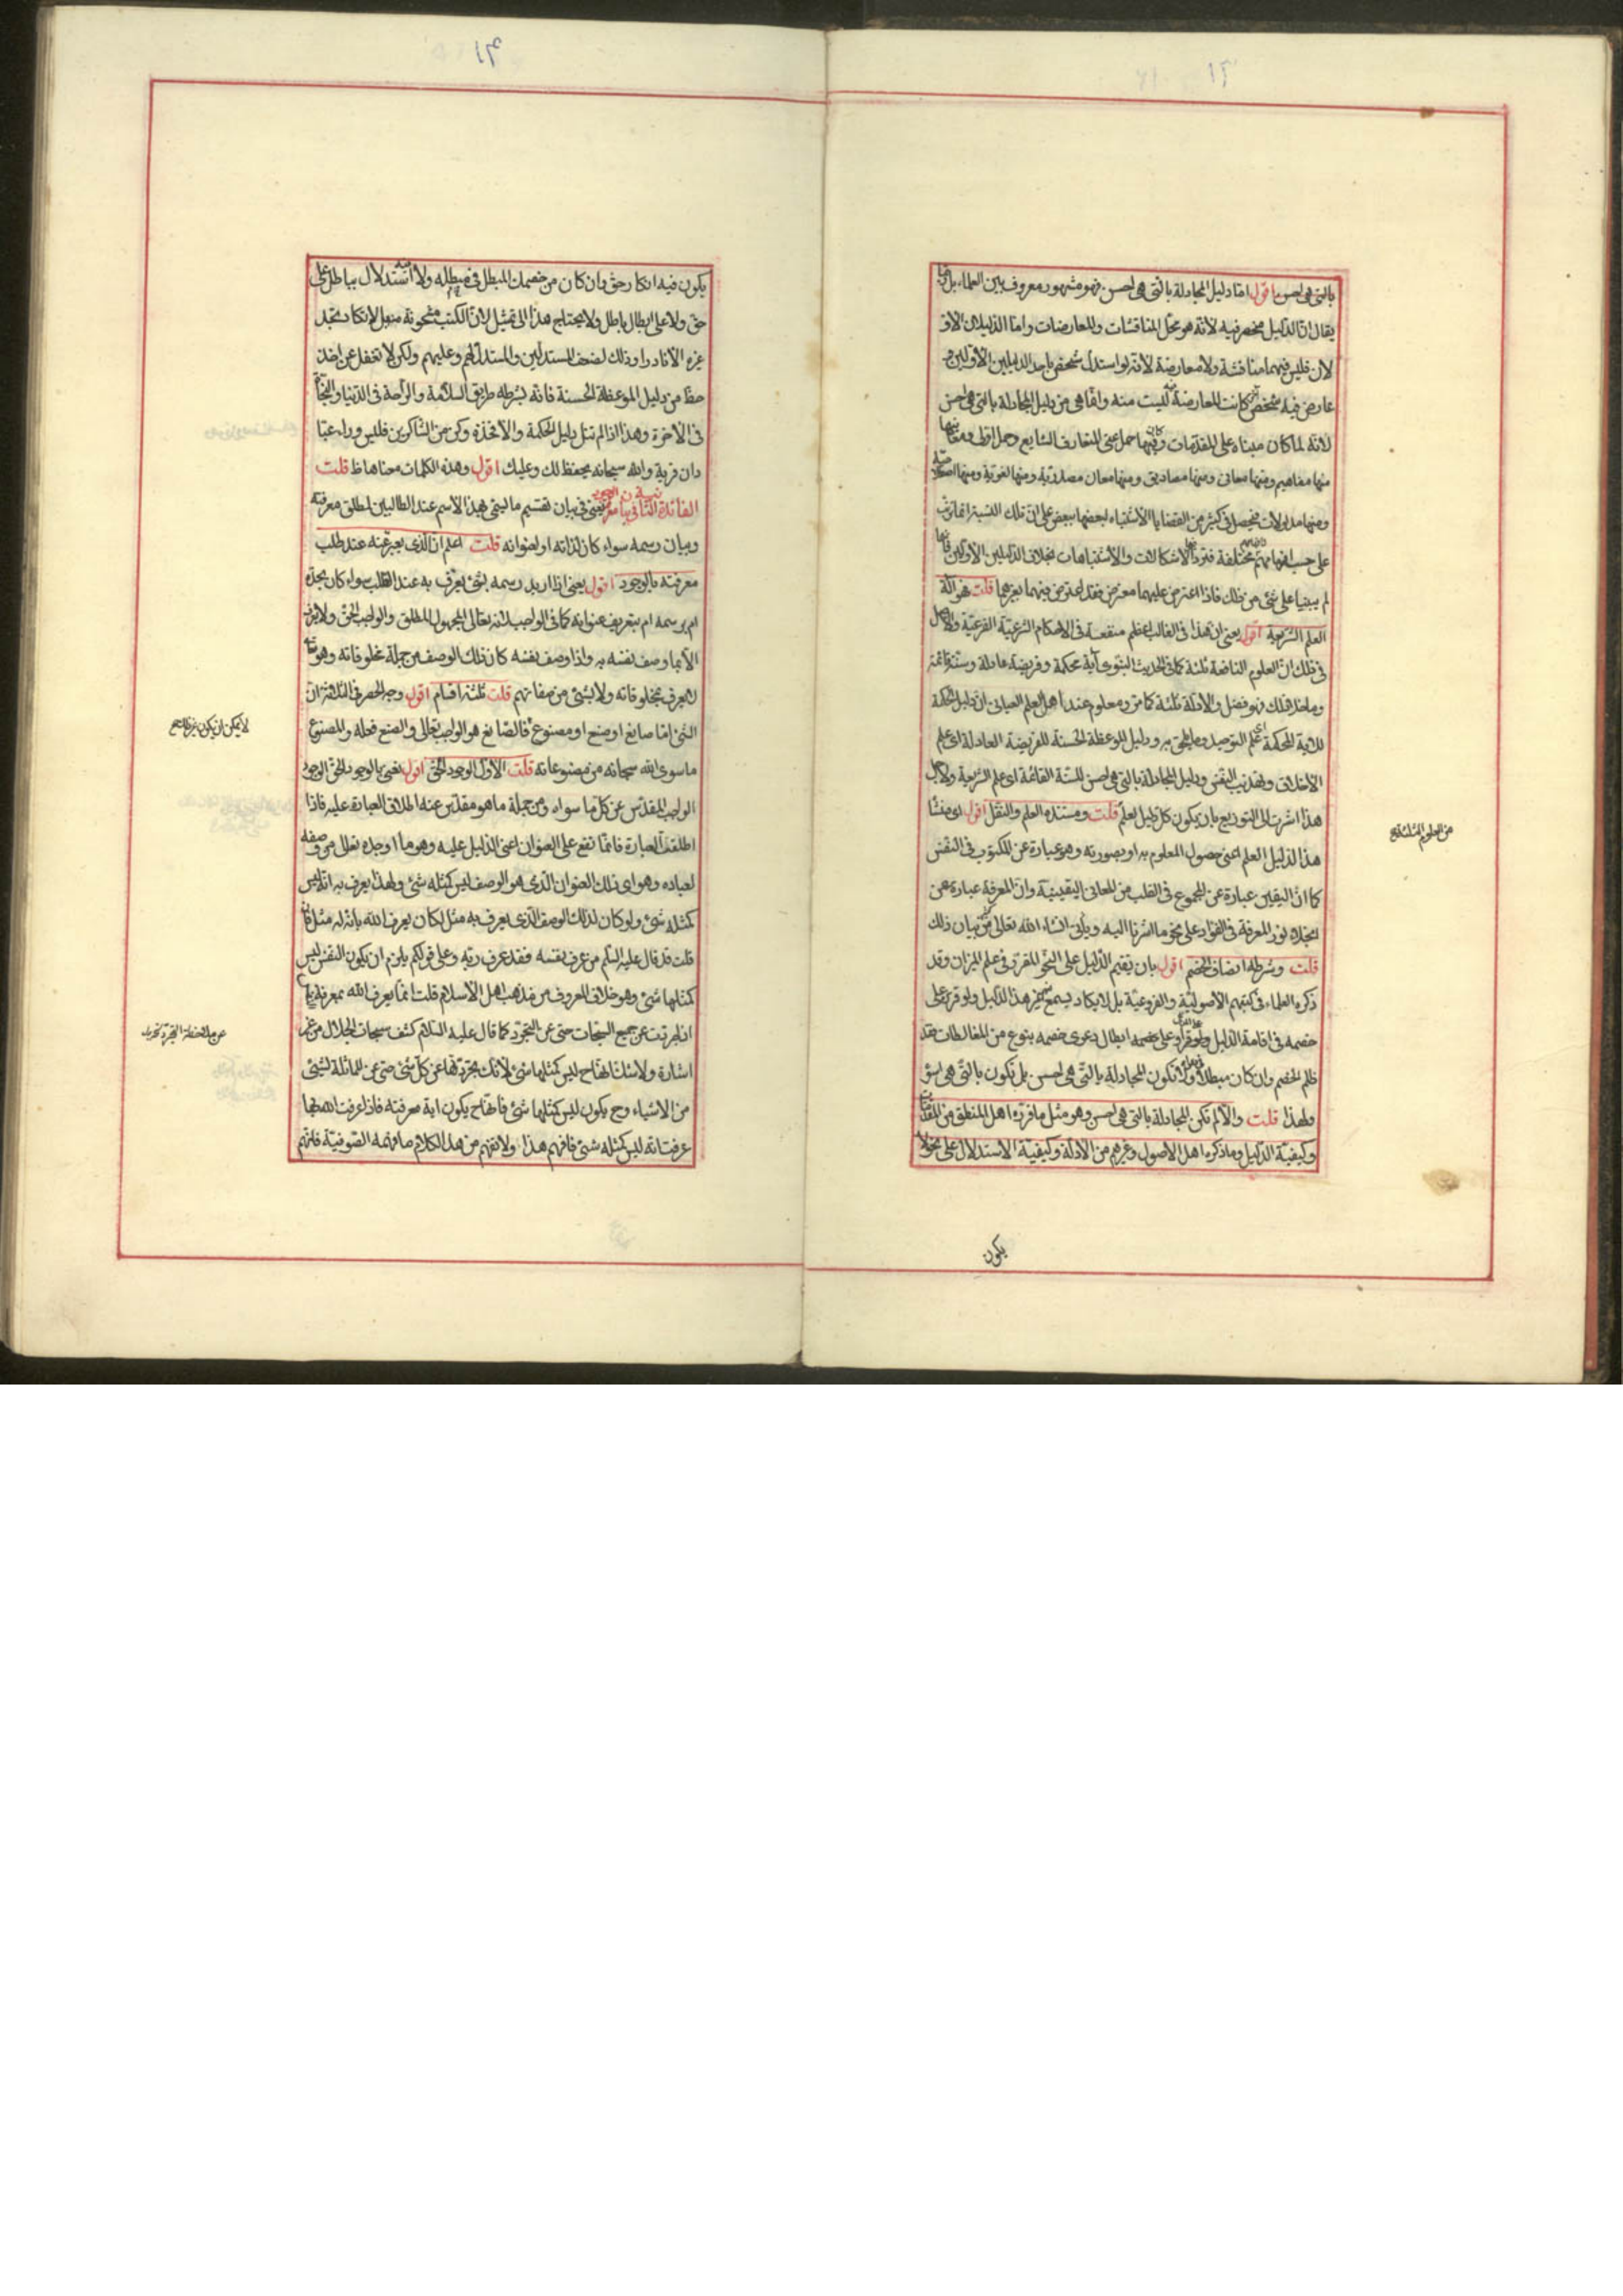 بالتى هى احسن اقول امّا دليل المجادلة بالتى هى احسن فهو مشهور معروف بين العلماء بل ربما
يقال انّ الدّليل منحصر فيه لانّه هو محلّ المناقشات والمعارضات وامّا الدّليلان الاوّ
لان فليس فيهما مناقشة ولا معارضة لانّه لو استدلّ شخص باحد الدليلين الاوّلين و
عارض فيه شخص آخر كانت المعارضة ليست منه وانّما هى من دليل المجادلة بالتى هى احسن
لانّه لما كان مبناه على المقدّمات وفيها حمل على المتعارف الشايع وحمل اولى ومعانيها
منها مفاهيم ومنها معانى ومنها مصاديق ومنها معان مصدريّة ومنها لغويّة ومنها اصطلاحيّة
ومنها مدلولات فيحصل فى كثير من القضايا الاشتباه لبعضها ببعض على انّ تلك النسبة انّما تعرف
على حسب افهامهم وهى مختلفة فترد فيها الاشكالات والاشتباهات بخلاف الدّليلين الاوّلين فانّهما
لم يبنيا على شئ من ذلك فاذا اعترض عليهما معترض فقد اعترض فيهما بغيرهما قلت فهو آلة
العلم الشريعة اقول يعنى ان هذا فى الغالب اعظم منفعة فى الاحكام الشّرعيّة الفرعيّة والاصل
فى ذلك انّ العلوم النافعة ثلثة كما فى الحديث النبوى آية محكمة وفريضة عادلة وسنّة قائمة
وما خلا ذلك فهو فضل والادلّة ثلثة كما مرّ ومعلوم عند اهل العلم العيانى انّ دليل الحكمة
للآية المحكمة اى علم التوحيد وما يلحق به ودليل الموعظة الحسنة للفريضة العادلة اى علم
الاخلاق وتهذيب النّفس ودليل المجادلة بالتى هى احسن للسنّة القائمة اى علم الشّريعة ولاجل
هذا اشرت الى التوزيع بان يكون كلّ دليل لعلم قلت ومستنده العلم والنقل اقول اى منشأ
هذا الدّليل العلم اعنى حصول المعلوم به او بصورته وهو عبارة عن المكتوب فى النّفس
كما انّ اليقين عبارة عن المجموع فى القلب من المعانى اليقينيّة وانّ المعرفة عبارة عن
انجلاء نور المعرفة فى الفؤاد على نحو ما اشرنا اليه ويأتى انشاء الله تعالى بيان ذلك
قلت وشرطه انصاف الخصم اقول بان يقيم الدّليل على النّحو المقرّر فى علم الميزان وقد
ذكره العلماء فى كتبهم الاصوليّة والفروعيّة بل لا يكاد يسمع غير هذا الدّليل ولو قرّر على
خصمه فى اقامة الدّليل على خصمه ابطال دعوى خصمه بنوع من المغالطات فقد
ظلم الخصم وان كان مبطلا ولا تكون المجادلة بالتّى هى احسن بل تكون بالتّى هى اسؤ
ولهذا قلت والّا لم تكن المجادلة بالتى هى احسن وهو مثل ما قرّره اهل المنطق من المقدّمات
وكيفيّة الدّليل وما ذكره اهل الاصول وغيرهم من الادلّة وكيفيّة الاستدلال على نحو لا
من العلوم الثلثة
يكون
يكون فيه انكار حقّ وان كان من خصمك المبطل فى مبطله ولا استدلال بباطل على
حقّ ولا على ابطال باطل ولا يحتاج هذا الى تمثيل لانّ الكتب مشحونة منه بل لا تكاد تجد
غيره الّا نادرا وذلك لضعف المستدلّين والمستدلّ لهم وعليهم ولكن لا تغفل عن اخذ
حظّ من دليل الموعظة الحسنة فانّه بشرطه طريق السّلامة والرّاحة فى الدّنيا والنّجاة
فى الآخرة وهذا اذا لم تنل دليل الحكمة والّا فخذه وكن من الشّاكرين فليس وراء عبّا
دان قرية والله سبحانه يحفظ لك وعليك اقول وهذه الكلمات معناها ظ قلت
الفائدة الثّانية فى بيان معرفة الوجود يعنى فى بيان تقسيم ما يسمّى بهذا الاسم عند الطالبين لمطلق معرفته
وبيان رسمه سواء كان لذاته او لعنوانه قلت اعلم انّ الذى يعبّر عنه عند طلب
معرفته بالوجود اقول يعنى اذا اريد رسمه بشئ يعرّف به عند الطّلب سواء كان بحدّه
ام برسمه ام بتعريف عنوانه كما فى الواجب لانّه تعالى المجهول المطلق والواجب الحقّ ولا يعرف
الّا بما وصف نفسه به واذا وصف نفسه كان ذلك الوصف من جملة مخلوقاته وهو تعالى
لا يعرف بمخلوقاته ولا بشئ من صفاتهم قلت ثلثة اقسام اقول وجه الحصر فى الثّلاثة انّ
الشّئ امّا صانع او صنع او مصنوع فالصّانع هو الواجب تعالى والصنع فعله والمصنوع
ما سوى الله سبحانه من مصنوعاته قلت الاوّل الوجود الحقّ اقول نعنى بالوجود الحقّ الوجود
الواجب المقدّس عن كلّ ما سواه ومن جملة ما هو مقدّس عنه اطلاق العبارة عليه فاذا
اطلقت العبارة فانّما تقع على العنوان اعنى الدّليل عليه وهو ما اوجده تعالى من وصفه
لعباده وهو اى ذلك العنوان الّذى هو الوصف ليس كمثله شئ ولهذا يعرف به انّه ليس
كمثله شئ ولو كان لذلك الوصف الّذى يعرف به مثل لكان يعرف الله بانّ له مثل فان
قلت قد قال عليه السّلم من عرف نفسه فقد عرف ربّه وعلى قولكم يلزم ان يكون النفس ليس
كمثلها شئ وهو خلاف المعروف من مذهب اهل الاسلام قلت انّما يعرف الله بمعرفة نفسك
اذا جردت عن جميع السّبحات حتى عن التّجرّد كما قال عليه السّلام كشف سبحات الجلال من غير
اشارة ولا شكّ انها ح ليس كمثلها شئ لانّك تجرّدها عن كلّ شئ حتى عن المماثلة لشئ
من الاشياء وح يكون ليس كمثلها شئ فانها ح يكون آية معرفته فاذا عرفت الله بها
عرفت انّه ليس كمثله شئ فافهم هذا ولا تفهم من هذا الكلام ما فهمه الصّوفيّة فانّهم
لا يمكن ان يكون
عن ملاحظة التجرّد